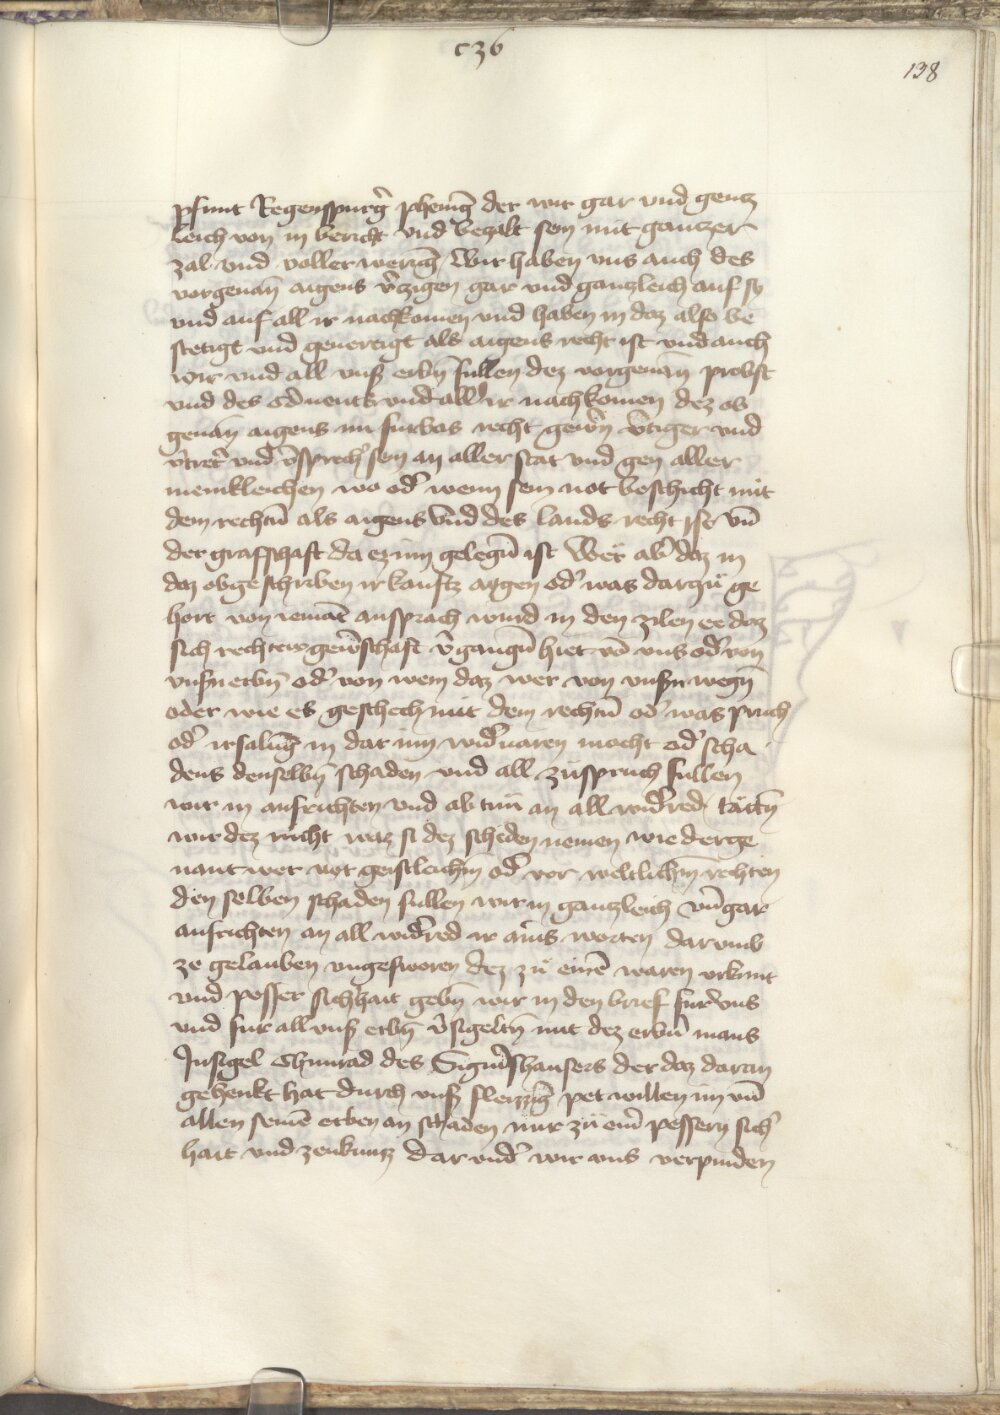 c36
138
pfunt Regenspurg̃ phening̃ der wir gar vnd gentz
leich von in bericht vnd bezalt sein mit gantzer
zal vnd voller werung̃ Wir haben vns auch des
vorgenañ aigens v̄zigen gar vnd gantzleich auf sy
vnd auf all ir nachkomen vnd haben in daz also be
stetigt vnd geuertigt als aigens recht ist vnd auch
wir vnd all vnß erbn̄ sullen dez vorgenañ probst
vnd des conuents vnd all ir nachkomen dez ob
genañ aigens nu furbas recht gewern̄ v̄tiger vnd
v̄tret̄ vnd v̄sprech̄ sein an aller stat vnd gen aller
menikleichen wo od̄ wenn sein not beschicht mit
dem rechtn̄ als aigens vnd des lands recht ist vn̄
der grafschaft da ez inn gelegn̄ ist Wer ab̄ daz in
daz obgeschriben ir kauftz aygen od̄ was darzu ge
hort von iemant ansprach wurd in den zilen ee daz
sich rechtew gew̄schaft v̄gangn̄ hiet vō vns od̄ von
vnsn̄ erbn̄ od̄ von wem daz wer von vnsn̄ wegn̄
oder wie es geschech mit dem rechtn̄ od̄ was pruch
od̄ irsalung̃ in dar inn wid̄uaren mocht od̄ scha
dens denselbn̄ schaden vnd all zuspruch sullen
wir in ausrichten vnd ab tun an all wid̄red tattn̄
wir dez nicht waz si dez scheden nemen wie der ge
nant wer vor geistleichn̄ od̄ vor weltlichn̄ rechten
den selben schaden sullen wir in gantzleich vn̄ gar
ausrichten an all wid̄red ir ains worten darumb
ze gelauben vngesworen dez zu einē waren vrkunt
vnd pesser sichhait gebn̄ wir in den brief fur vns
vnd fur all vnß erbn̄ v̄sigeltn̄ mit dez erbn̄ mans
Insigel Chunrad des Sigm̄shausers der daz daran
gehenkt hat durch vnß fleizzig̃ pet willen im vn̄
allen seinē erben an schaden nur zu ein̄ pessern sich̄
hait vnd zeuknuz dar vnd̄ wir vns verpinden